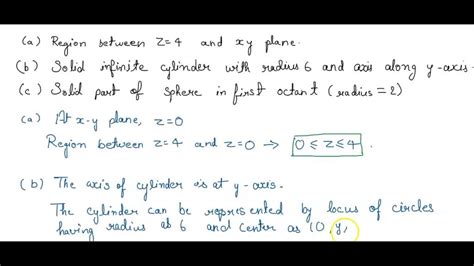 (a) Region between z=4 and xy plane.
(b) Solid infinite cylinder with radius 6 and axis along y-axis.
(c) Solid part of sphere in first octant (radius=2)
(a) At x-y plane, z=0
Region between z=4 and z=0 → 0≤z≤4.
(b) The axis of cylinder is at y-axis.
The cylinder can be represented by locus of circles
having radius as 6 and center as (0,y,